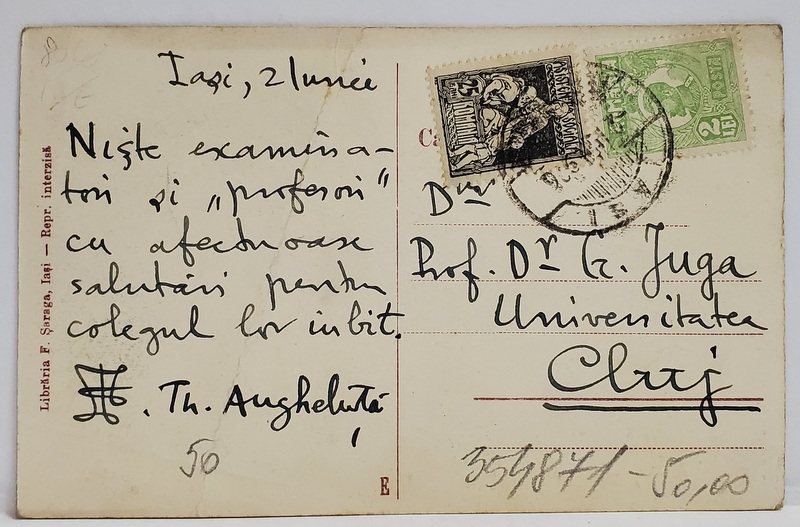 Iași, 2 Iunie
Niște examina-
tori și „profesori"
cu afectuoase
salutări pentru
colegul lor iubit.
Th. Angheluță
50
Librăria F. Șaraga, Iași — Repr. interzisă
E
25
ASISTENȚA SOCIALĂ
POSTA
2 LEI
IAȘI
Dlui
Prof. Dr G. Iuga
Universitatea
Cluj
354871 - 50,00